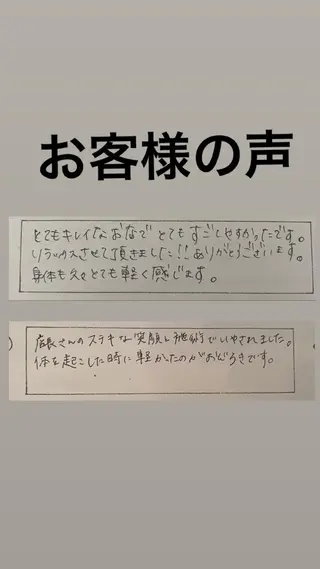 お客様の声
とてもキレイなおなで とても すごしやすかったです。
リラックスさせて頂きました!! ありがとうございます。
身体も久々とても軽く感じます。
店長さんのステキな笑顔と施術でいやされました。
体を起こした時に軽かったのがおどろきです。